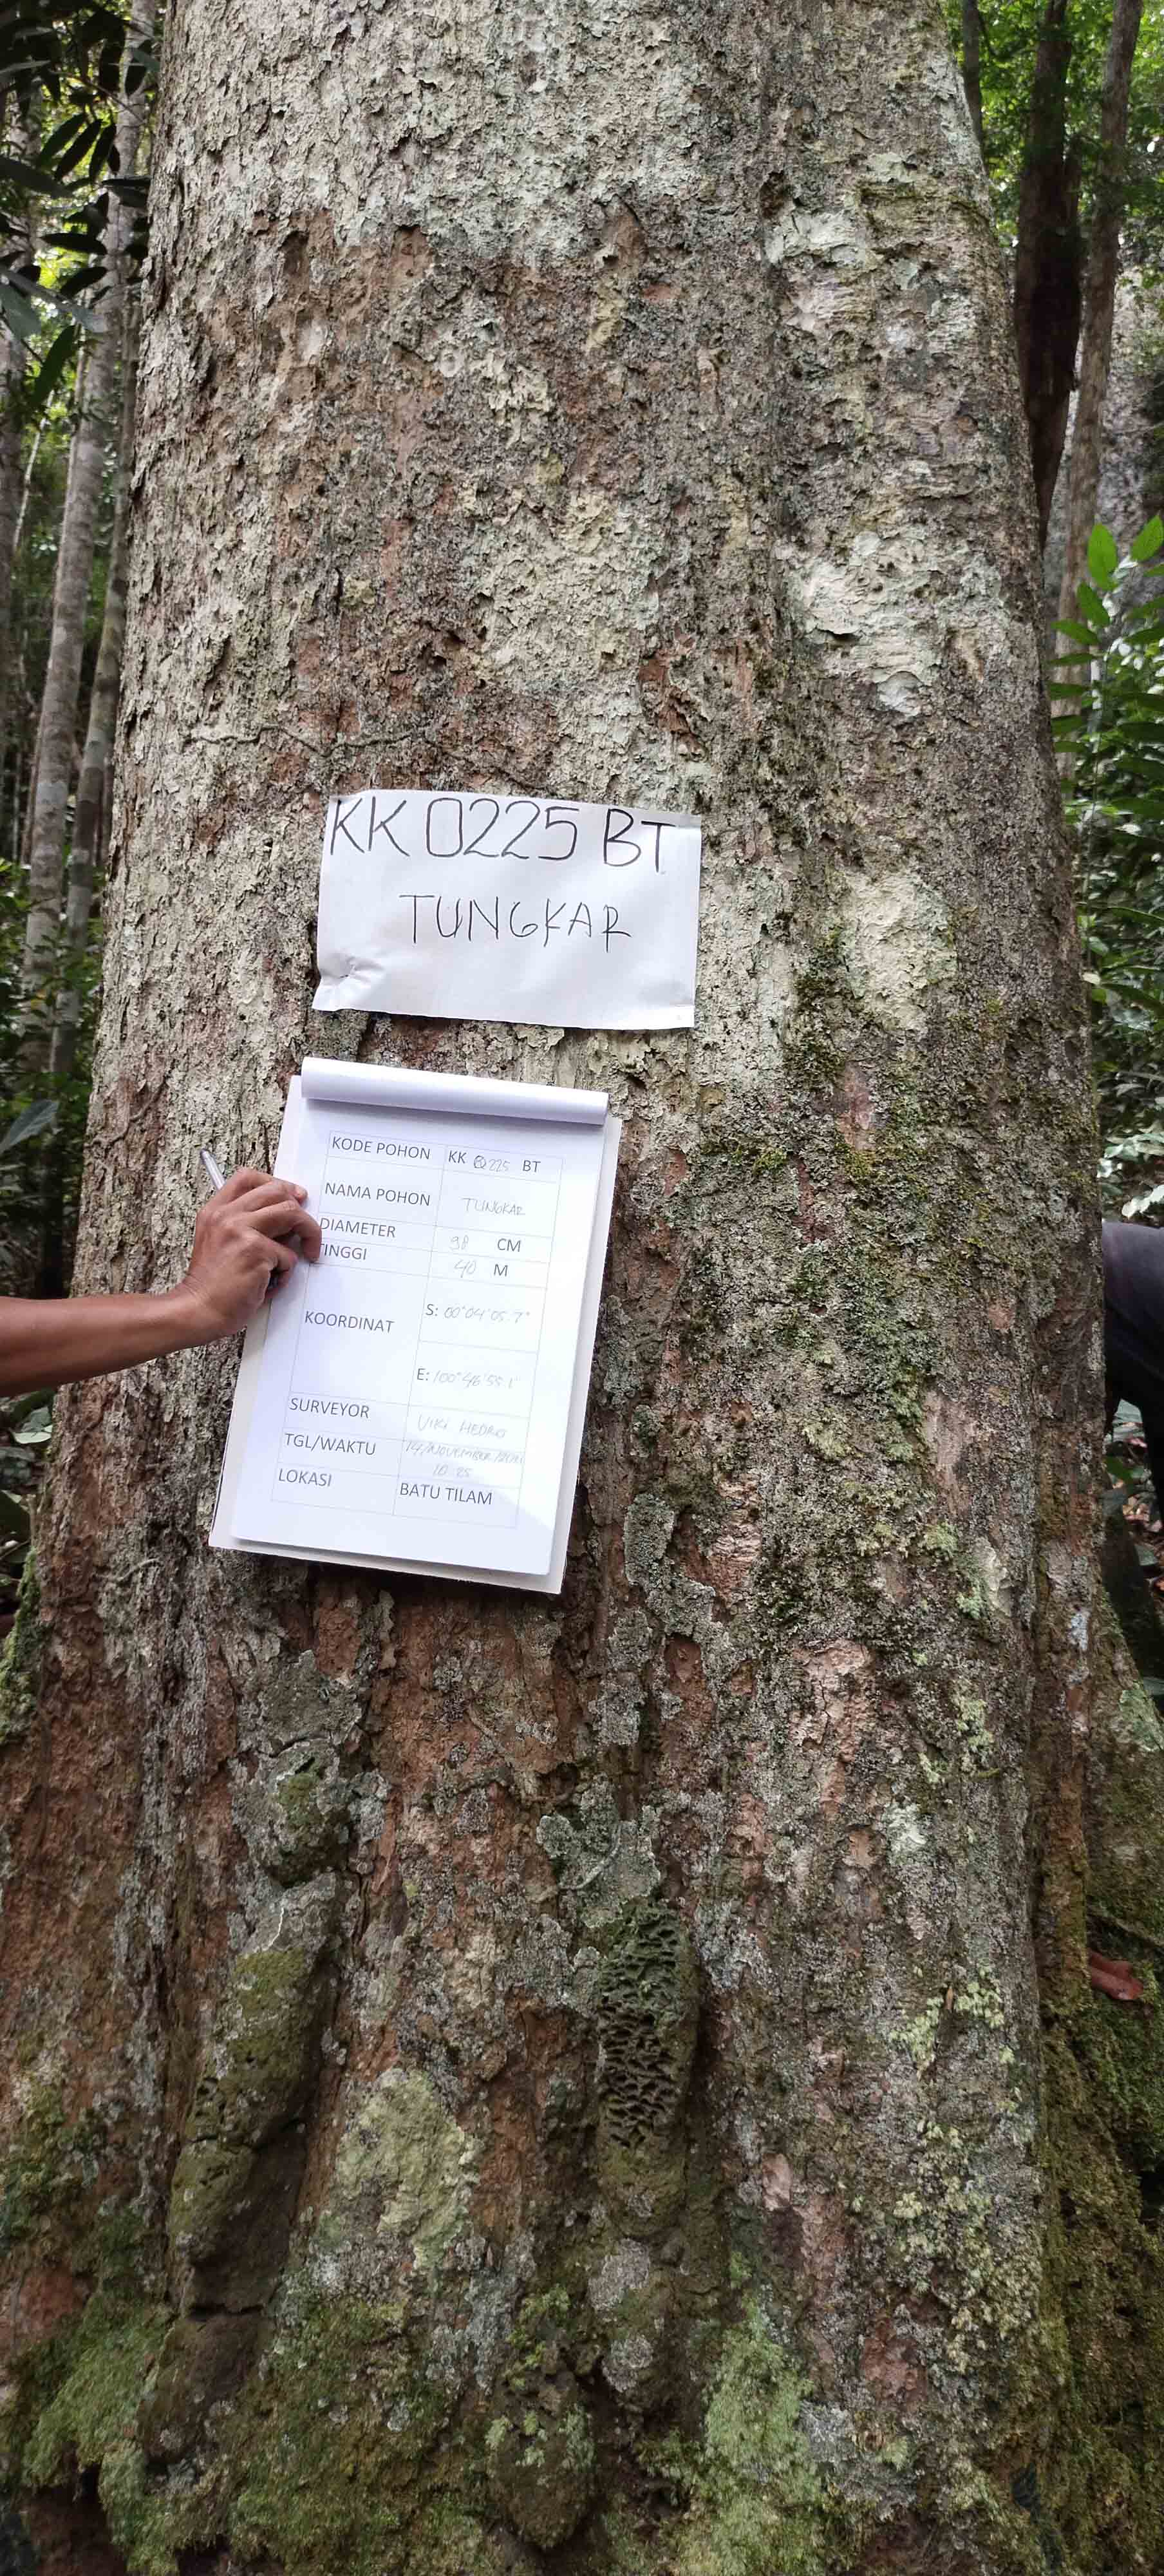 KK 0225 BT
TUNGKAR
KODE POHON KK 0225 BT
NAMA POHON TUNGKAR
DIAMETER 98 CM
TINGGI 40 M
KOORDINAT S: 00°04'05.7"
E: 100°46'55.1"
SURVEYOR
TGL/WAKTU 14/NOVEMBER
LOKASI BATU TILAM